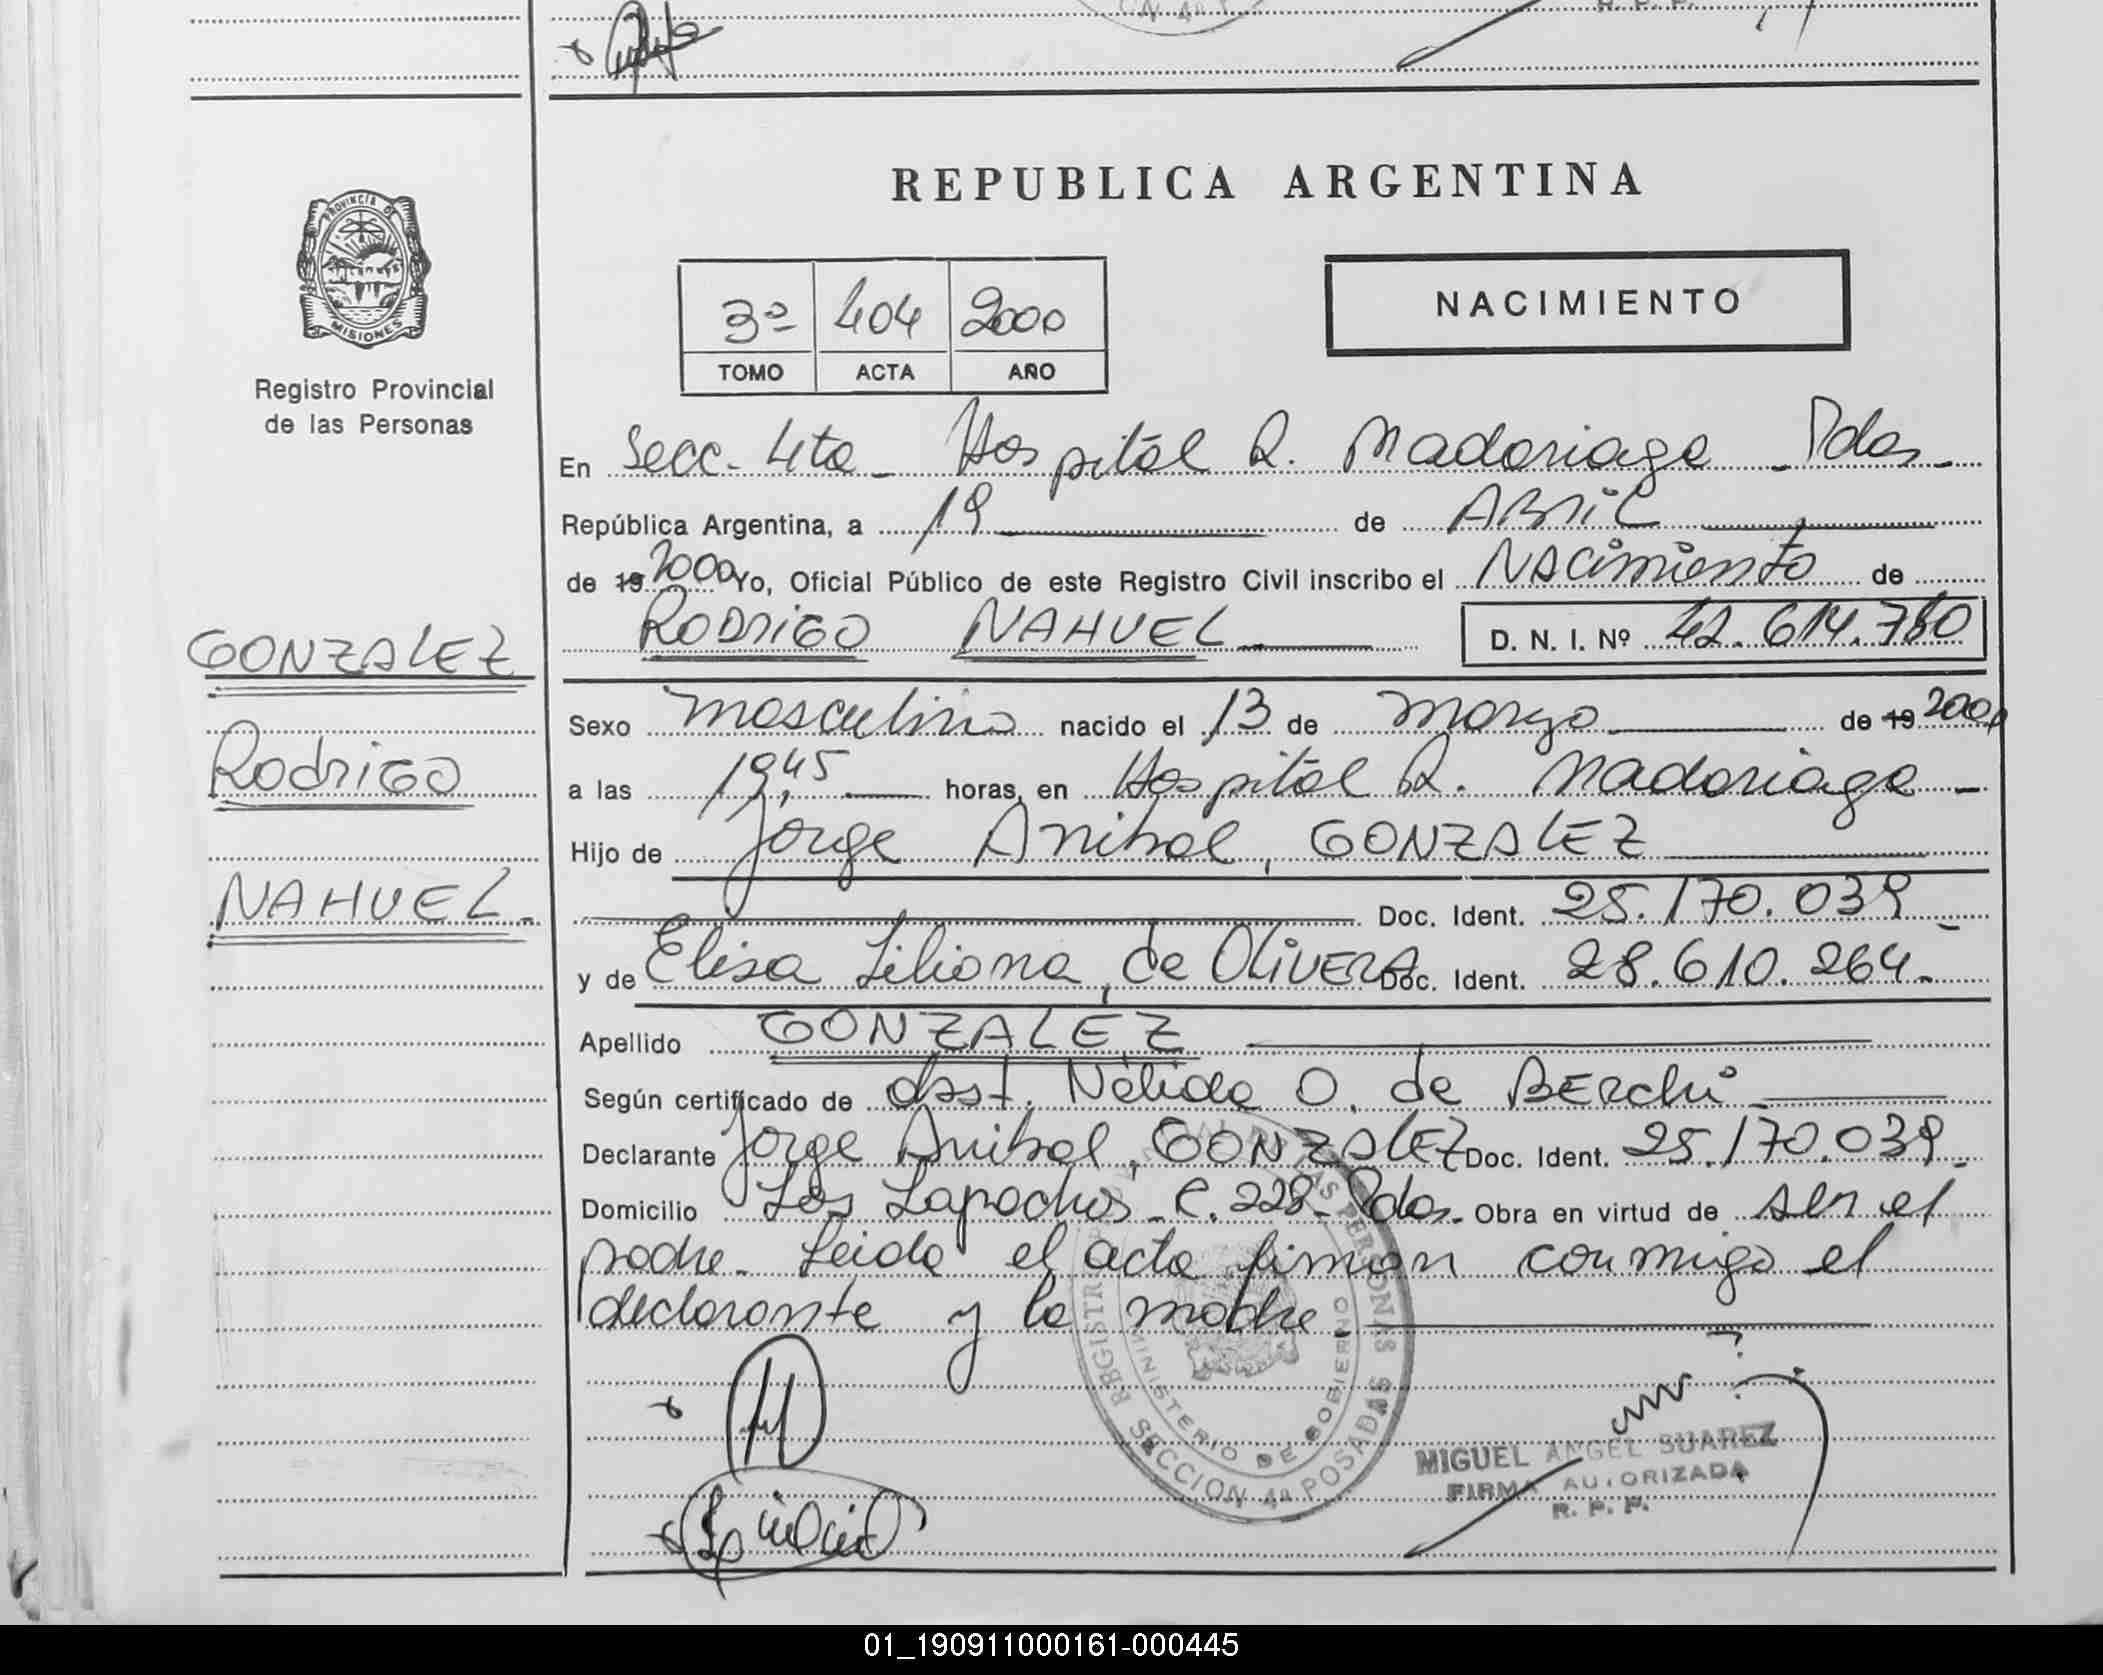 REPUBLICA ARGENTINA
PROVINCIA DE
MISIONES
Registro Provincial
de las Personas
3º 404 2000
TOMO ACTA AÑO
NACIMIENTO
En Secc. 4ta - Hospital R. Madariaga - Pdas -
República Argentina, a 19 de ABRIL
de 19 2000 Yo, Oficial Público de este Registro Civil inscribo el NACimiento de
RODRIGO NAHUEL D. N. I. Nº 42.614.780
GONZALEZ
Rodrigo
NAHUEL.-
Sexo masculino nacido el 13 de marzo de 19 2000
a las 19,45 horas, en Hospital R. Madariaga -
Hijo de Jorge Anibal, GONZALEZ
Doc. Ident. 25.170.039.-
y de Elisa Liliana, de OLiVERA Doc. Ident. 28.610.264.-
Apellido GONZALEZ
Según certificado de obst. Nélida O. de BERchi
Declarante Jorge Anibal, GONZALEZ Doc. Ident. 25.170.039.-
Domicilio Los Lapachos - C. 228 - Pdas.- Obra en virtud de ser el
padre - Leida el acta firman conmigo el
declarante y la madre.-
MINISTERIO DE GOBIERNO
SECCION 4ª POSADAS
MIGUEL ANGEL SUAREZ
FIRMA AUTORIZADA
R. P. P.
01_190911000161-000445